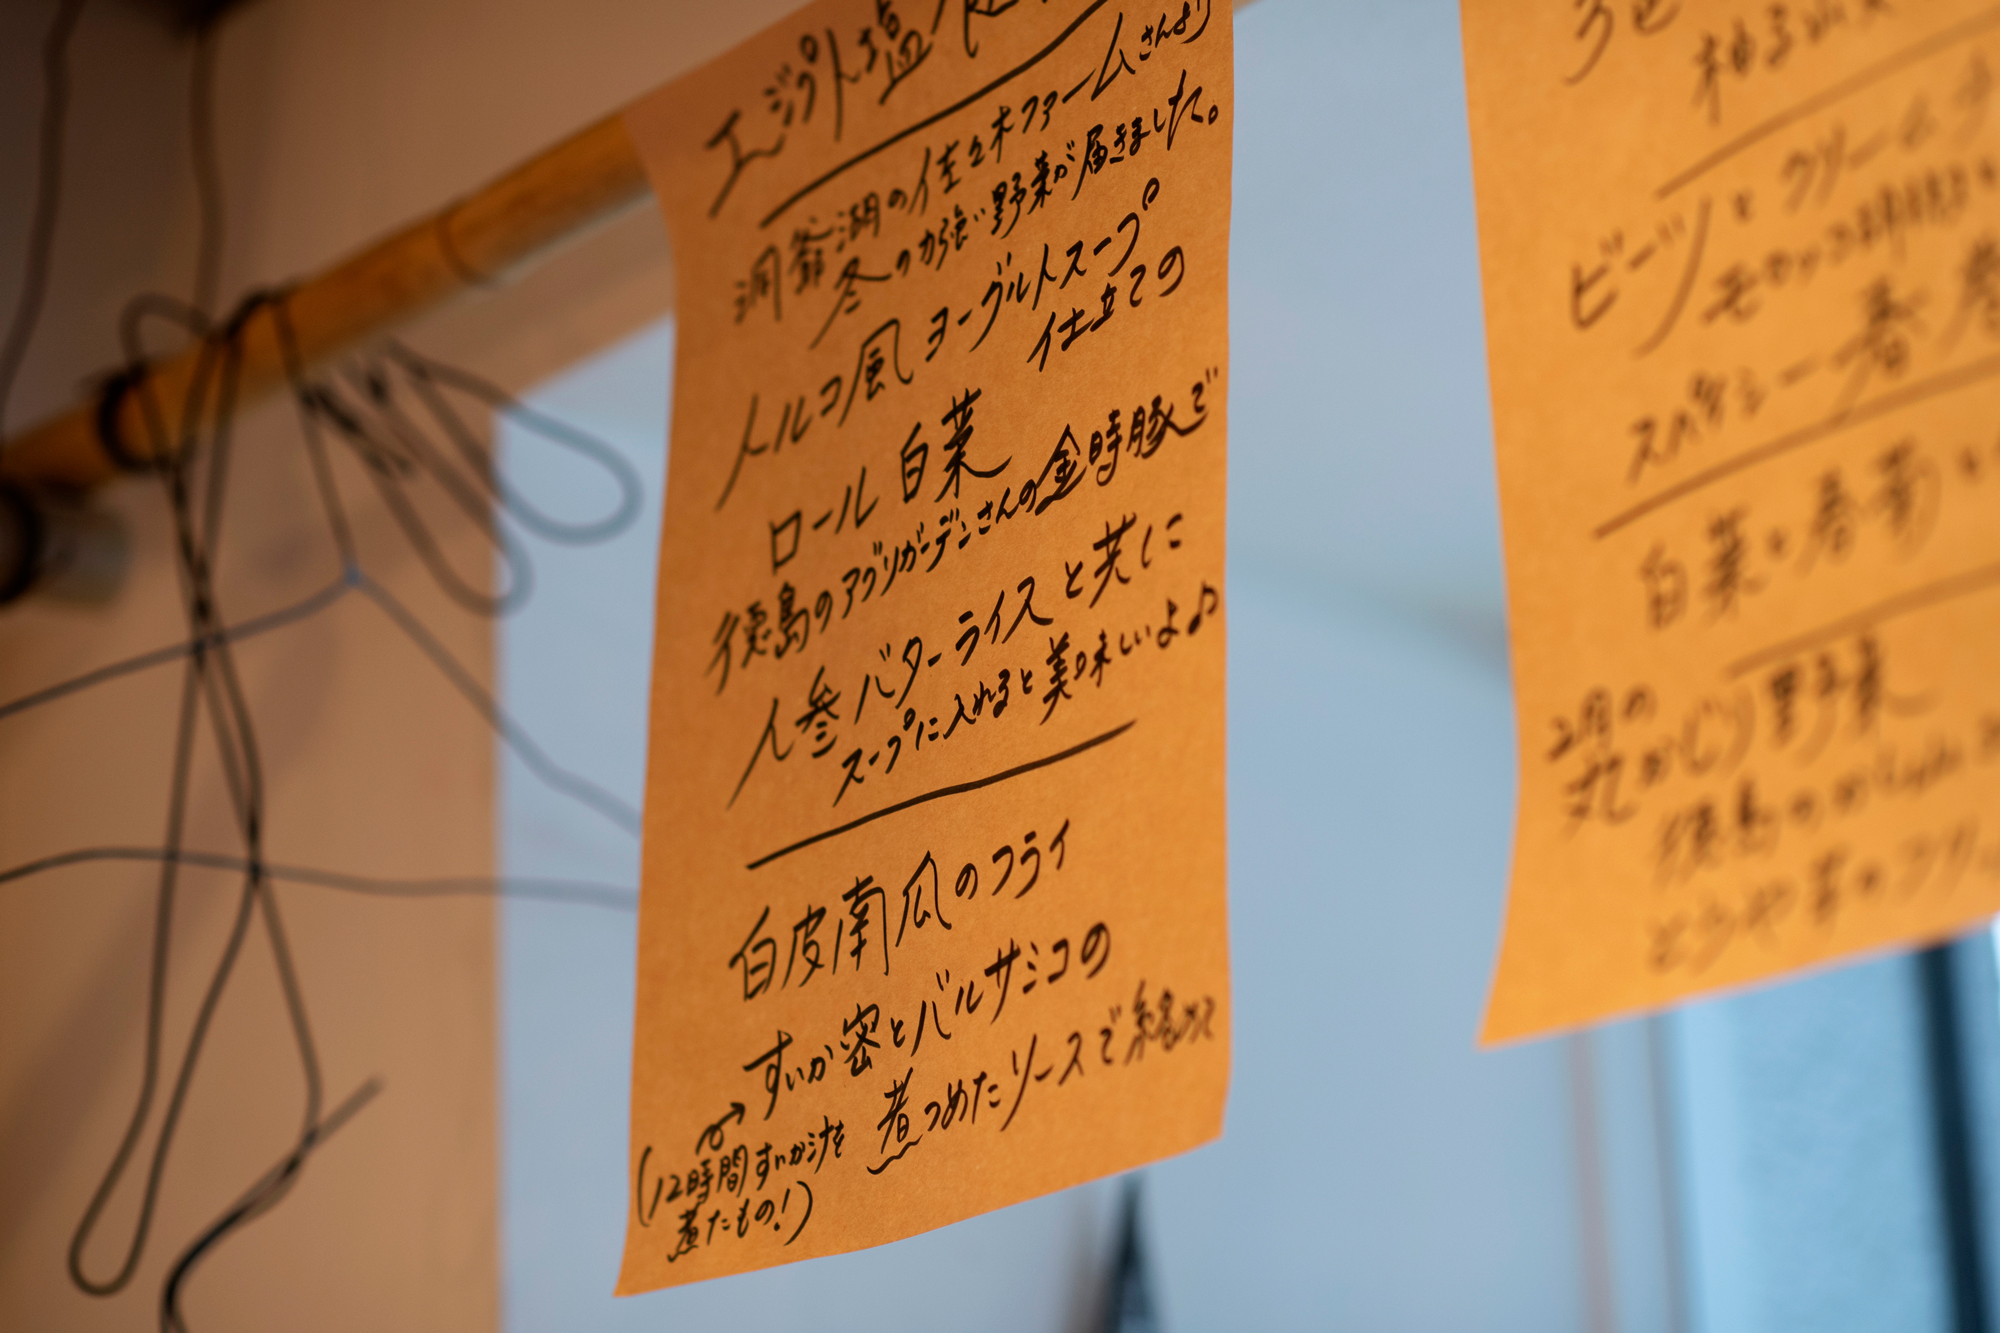 エジプト塩
洞爺湖の佐々木ファームさんより
冬の力強い野菜が届きました。
トルコ風ヨーグルトスープ
仕立ての
ロール白菜
徳島のアグリガーデンさんの金時豚で
人参バターライスと共に
スープに入れると美味しいよ♪
白皮南瓜のフライ
すいか密とバルサミコの
煮つめたソースで絡めて
(12時間すいか汁を
煮たもの!)
ビーツとクリーム
スパイシー春巻
白菜と春菊
2月の
丸かじり野菜
徳島の